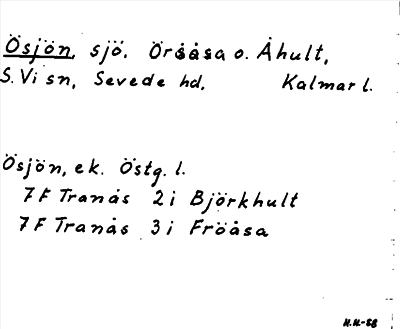 Ösjön, sjö. Öråsa o. Åhult,
S. Vi sn, Sevede hd, Kalmar l.
Ösjön, ek. Östg. l.
7 F Tranås 2 i Björkhult
7 F Tranås 3 i Fröåsa
H.H-68